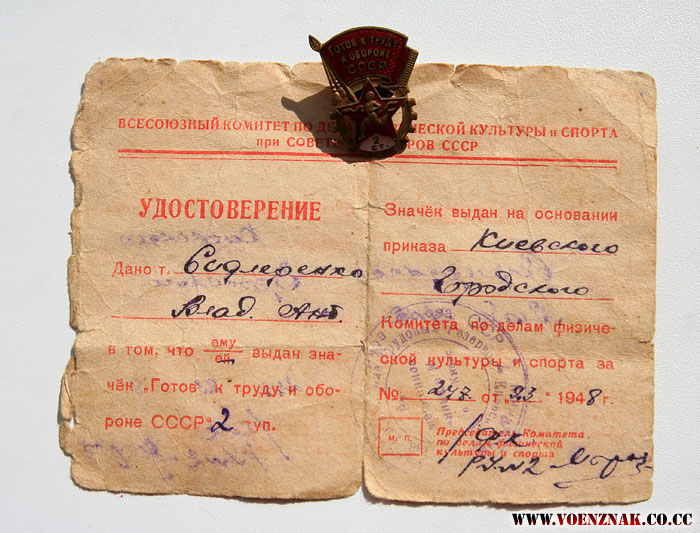 ГОТОВ К ТРУДУ
И ОБОРОНЕ
СССР
2
СТ.
ВСЕСОЮЗНЫЙ КОМИТЕТ ПО ДЕ ЧЕСКОЙ КУЛЬТУРЫ и СПОРТА
при СОВЕТ РОВ СССР
УДОСТОВЕРЕНИЕ
Дано т. Сидлеренко
Влад. Ант.
в том, что ему
ей выдан зна-
чёк „Готов к труду и обо-
роне СССР" 2 ступ.
Значёк выдан на основании
приказа Киевского
Городского
Комитета по делам физиче-
ской культуры и спорта за
№ 247 от „23" 1948 г.
м. п.
Председатель Комитета
по делам физической
культуры и спорта
WWW.VOENZNAK.CO.CC